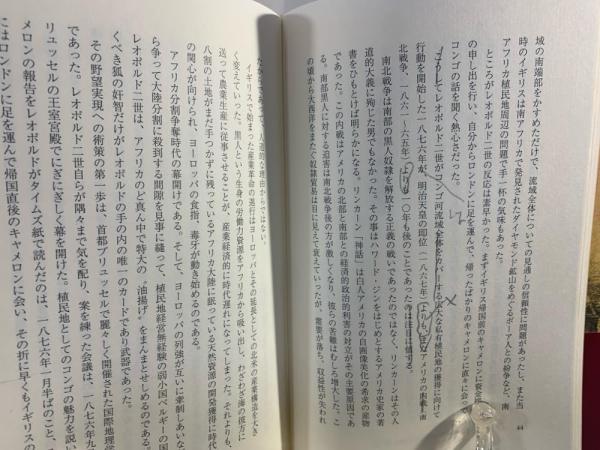 44
域の南端部をかすめただけで、流域全体についての見通しの信頼性に問題があったし、また当
時のイギリスは南アフリカで発見されたダイヤモンド鉱山をめぐるボーア人との紛争など、南
アフリカ植民地周辺の問題で手一杯の気味もあった。
ところがレオポルド二世の反応は素早かった。まずイギリス帰国前のキャメロンに資金
の申し出を行い、自分からロンドンに足を運んで、帰ったばかりのキャメロンに直々に会って
コンゴの話を聞く熱心さだった。
こうしてレオポルド二世がコンゴ河流域全体をカバーする広大な私有植民地の獲得に向けて
行動を開始した一八七六年が、明治天皇の即位（一八六七年）よりも、またアメリカの内戦＝南
北戦争、一八六一〜六五年）よりも一〇年も後のことであった事は注目に値する。
南北戦争は南部の黒人奴隷を解放する正義の戦いであったのではなく、リンカーンはその人
道的大義に殉じた男でもなかった。その事はハワード・ジンをはじめとするアメリカ史家の著
書をひもとけば明らかになる。リンカーン「神話」は白人アメリカの自画像美化の希求の産物
であった。この内戦はアメリカの北部と南部との経済的政治的利害の対立がその主要原因であ
る。南部黒人に対する迫害は南北戦争後の方が激しくなり、彼らの苦難はむしろ増大した。こ
の頃から大西洋をまたぐ奴隷貿易は目に見えて衰えていったが、需要が落ち、収益性が失われ
たからであって、人道的な理由からではない。
イギリスで始まった産業革命の進行はヨーロッパとその延長としての北米の産業構造を大き
く変えていった。黒人という生身の労働力資源をアフリカから吸い出し、わざわざ海の彼方に
送って農業生産に従事させることが、産業経済的に時代遅れになってしまった。それよりも、
八割の土地がまだ手つかずに残っているアフリカ大陸に眠っている天然資源の開発獲得に時代
の関心が向けられ、ヨーロッパの食指、毒牙が動き始めるのである。
アフリカ分割争奪時代の幕開けである。そして、ヨーロッパの列強が互いに牽制しあいな
ら争って大陸分割に殺到する間隙を見事に縫って、植民地経営無経験の弱小国ベルギーの国
レオポルド二世は、アフリカのど真ん中で特大の“油揚げ”をまんまとせしめるのである。
くべき狐の奸智だけがレオポルドの手の内の唯一のカードであり武器であった。
その野望実現への術策の第一歩は、首都ブリュッセルで麗々しく開催された国際地理学
であった。レオポルド二世自らが隅々まで気を配り、案を練った会議は、一八七六年九
リュッセルの王室宮殿でにぎにぎしく幕を開けた。植民地としてのコンゴの魅力を説い
メロンの報告をレオポルドがタイムズ紙で読んだのは、一八七六年一月半ばのこと、
にはロンドンに足を運んで帰国直後のキャメロンに会い、その折に早くもイギリスの